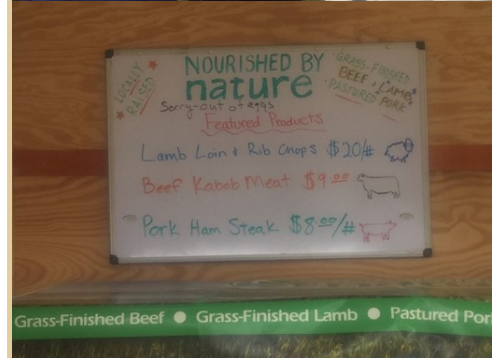 LOCALLY
RAISED
NOURISHED BY
nature
GRASS-FINISHED
BEEF & LAMB,
PASTURED PORK
Sorry-out of eggs
Featured Products
Lamb Loin & Rib Chops $20/#
Beef Kabob Meat $9.00
Pork Ham Steak $8.00/#
Grass-Finished Beef ● Grass-Finished Lamb ● Pastured Por